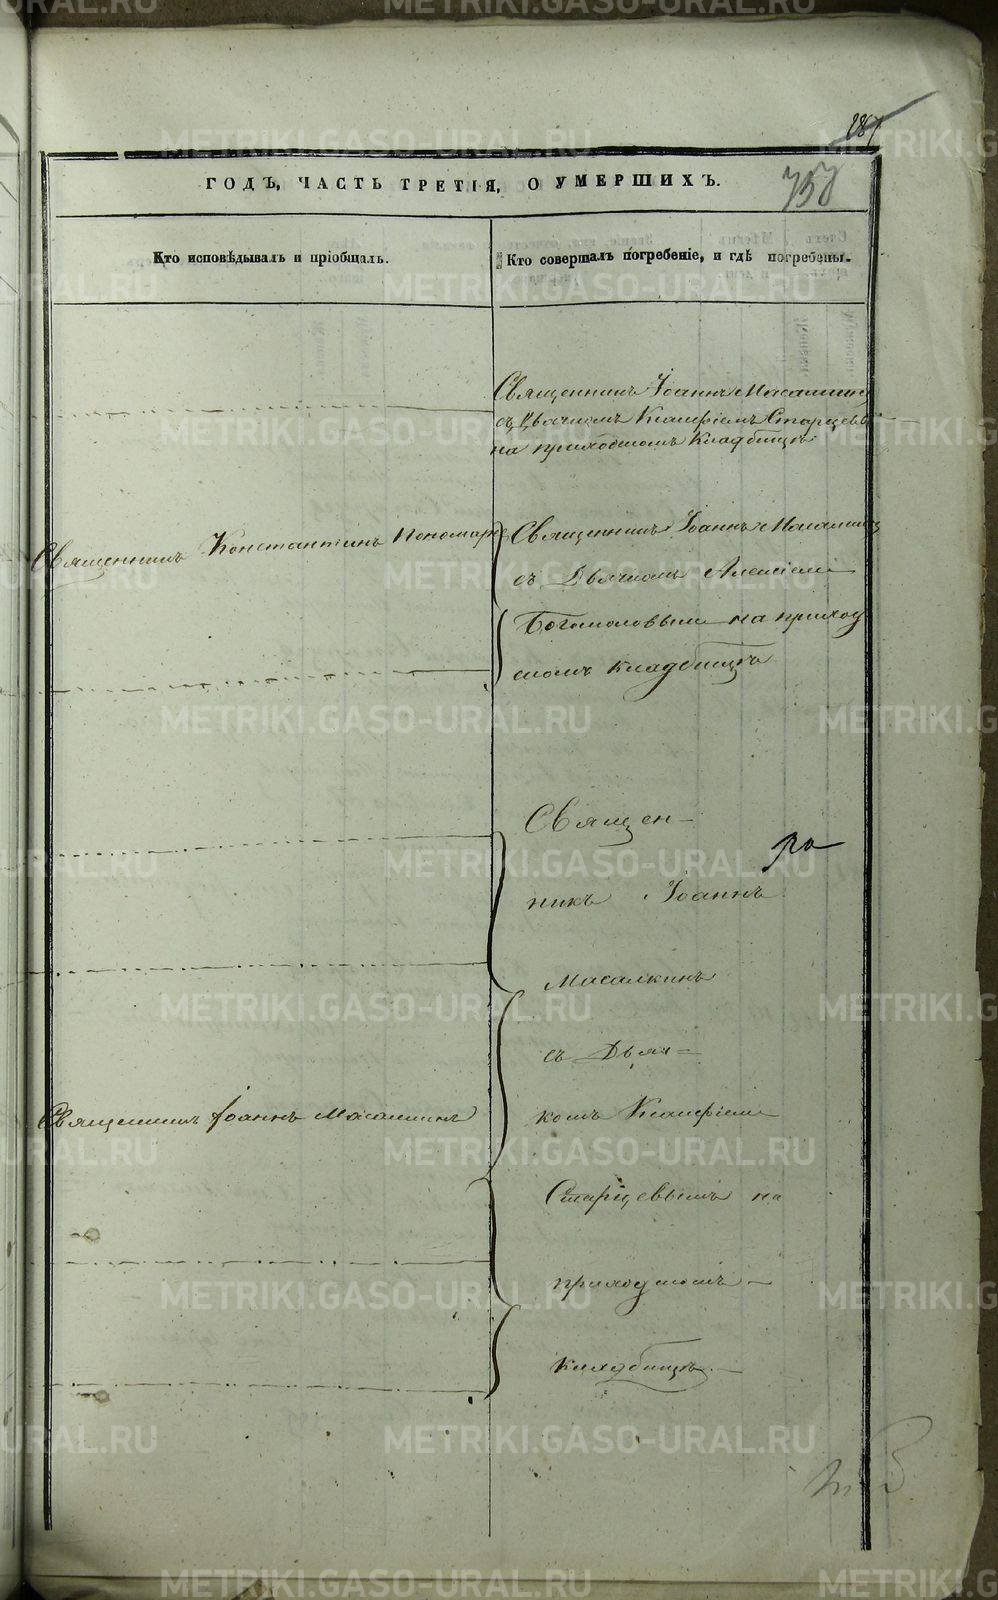 287
757
ГОДЪ, ЧАСТЬ ТРЕТІЯ, О УМЕРШИХЪ.
Кто исповѣдывалъ и пріобщалъ.
Кто совершалъ погребеніе, и гдѣ погребены.
Священникъ Іоаннъ Масалкинъ
съ Дьячкомъ Старцевы
на приходскомъ Кладбищѣ
Священникъ Константинъ Пономаре
Священникъ Іоаннъ Масалкинъ
съ Дьячкомъ Алексіемъ
Богомоловымъ на приход
скомъ кладбищѣ
Священ-
никъ Іоаннъ
Масалкинъ
съ Дьяч=
Священникъ Іоаннъ Масалкинъ
комъ
Старцевымъ на
приходскомъ
кладбищѣ.
METRIKI.GASO-URAL.RU